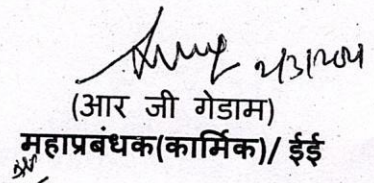 2/3/2021
(आर जी गेडाम)
महाप्रबंधक(कार्मिक)/ ईई